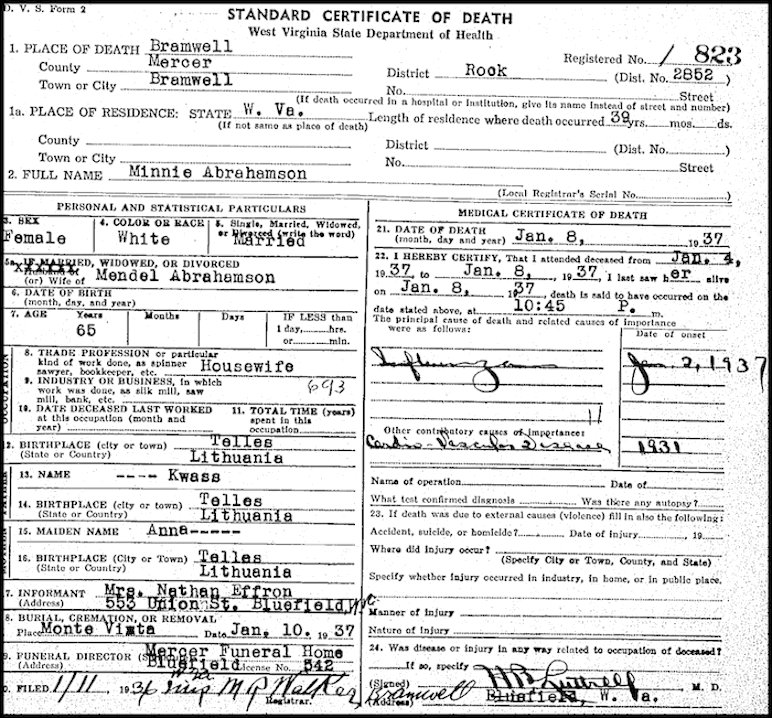 D. V. S. Form 2
STANDARD CERTIFICATE OF DEATH
West Virginia State Department of Health
1. PLACE OF DEATH Bramwell
Registered No. 823
County Mercer
District Rook (Dist. No. 2852)
Town or City Bramwell
No. Street
(If death occurred in a hospital or institution, give its name instead of street and number)
1a. PLACE OF RESIDENCE: STATE W. Va. Length of residence where death occurred 39 yrs. mos. ds.
(If not same as place of death)
County
District (Dist. No. )
Town or City
No. Street
2. FULL NAME Minnie Abrahamson
(Local Registrar's Serial No. )
PERSONAL AND STATISTICAL PARTICULARS
3. SEX
Female
4. COLOR OR RACE
White
5. Single, Married, Widowed, or Divorced (write the word)
Married
5a. IF MARRIED, WIDOWED, OR DIVORCED
Husband of
(or) Wife of Mendel Abrahamson
6. DATE OF BIRTH
(month, day, and year)
7. AGE Years Months Days IF LESS than
65 1 day, hrs.
or min.
OCCUPATION
8. TRADE PROFESSION or particular
kind of work done, as spinner
sawyer, bookkeeper, etc. Housewife
9. INDUSTRY OR BUSINESS, in which
work was done, as silk mill, saw
mill, bank, etc. 693
10. DATE DECEASED LAST WORKED
at this occupation (month and
year)
11. TOTAL TIME (years)
spent in this
occupation
12. BIRTHPLACE (city or town) Telles
(State or Country) Lithuania
13. NAME ---- Kwass
14. BIRTHPLACE (city or town) Telles
(State or Country) Lithuania
15. MAIDEN NAME Anna-----
16. BIRTHPLACE (City or Town) Telles
(State or Country) Lithuania
7. INFORMANT Mrs. Nathan Effron
(Address) 553 Union St. Bluefield, W Va
8. BURIAL, CREMATION, OR REMOVAL
Place Monte Vista Date Jan. 10. 1937
9. FUNERAL DIRECTOR Mercer Funeral Home
(Address) Bluefield License No. 542
W Va
0. FILED 1/11 193 M G Walker
Registrar.
MEDICAL CERTIFICATE OF DEATH
21. DATE OF DEATH
(month, day and year) Jan. 8, 1937
22. I HEREBY CERTIFY, That I attended deceased from Jan. 4,
1937, to Jan. 8, 1937, I last saw her alive
on Jan. 8, 1937, death is said to have occurred on the
date stated above, at 10:45 P. m.
The principal cause of death and related causes of importance
were as follows:
Date of onset
Influenza Jan 2, 1937
11
Other contributory causes of importance:
Cardio-Vascular Disease 1931
Name of operation Date of
What test confirmed diagnosis Was there any autopsy?
23. If death was due to external causes (violence) fill in also the following:
Accident, suicide, or homicide? Date of injury , 19
Where did injury occur?
(Specify City or Town, County, and State)
Specify whether injury occurred in industry, in home, or in public place.
Manner of Injury
Nature of Injury
24. Was disease or injury in any way related to occupation of deceased?
If so, specify
(Signed) M. D.
(Address) Bramwell Bluefield, W. Va.